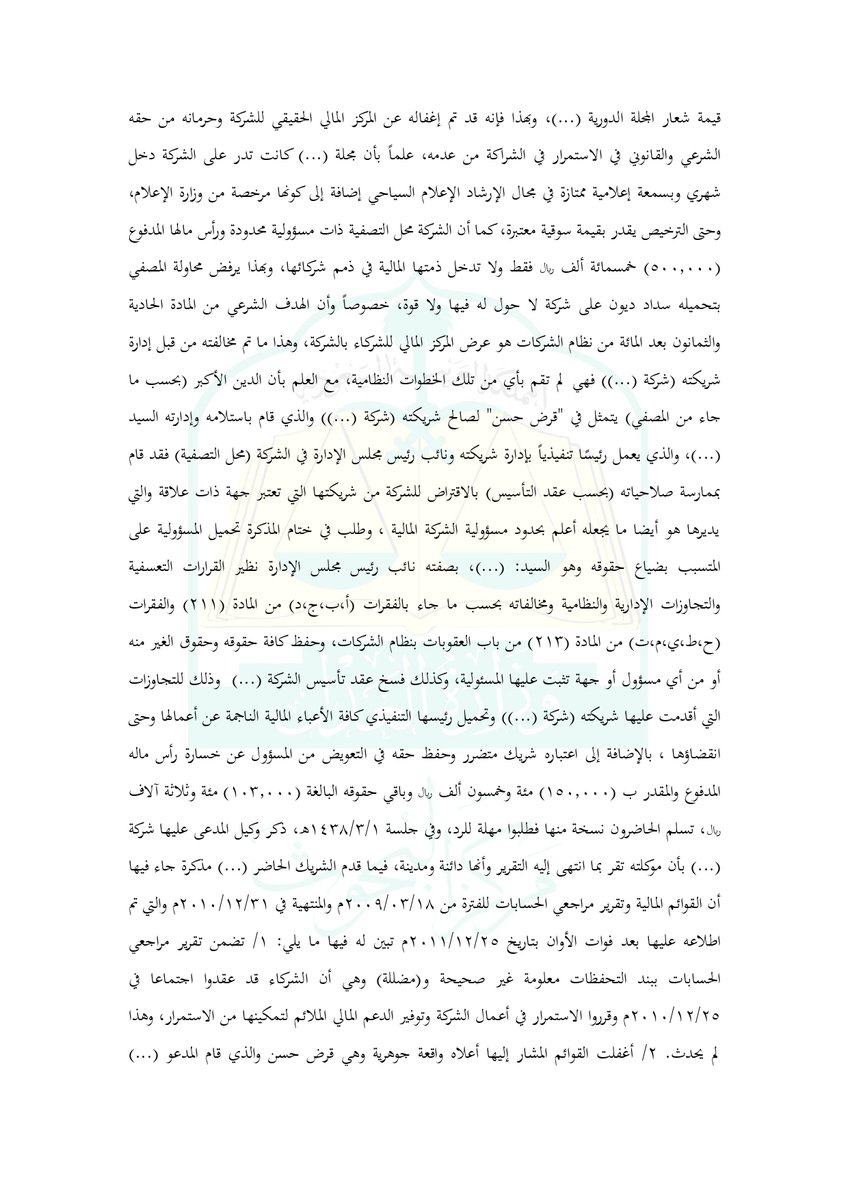 قيمة شعار المجلة الدورية (...)، وبهذا فإنه قد تم إغفاله عن المركز المالي الحقيقي للشركة وحرمانه من حقه
الشرعي والقانوني في الاستمرار في الشراكة من عدمه، علماً بأن مجلة (...) كانت تدر على الشركة دخل
شهري وبسمعة إعلامية ممتازة في مجال الإرشاد الإعلام السياحي إضافة إلى كونها مرخصة من وزارة الإعلام،
وحتى الترخيص يقدر بقيمة سوقية معتبرة، كما أن الشركة محل التصفية ذات مسؤولية محدودة ورأس مالها المدفوع
(٥٠٠,٠٠٠) خمسمائة ألف ريال فقط ولا تدخل ذمتها المالية في ذمم شركائها، وبهذا يرفض محاولة المصفي
بتحميله سداد ديون على شركة لا حول له فيها ولا قوة، خصوصاً وأن الهدف الشرعي من المادة الحادية
والثمانون بعد المائة من نظام الشركات هو عرض المركز المالي للشركاء بالشركة، وهذا ما تم مخالفته من قبل إدارة
شريكته (شركة (...)) فهي لم تقم بأي من تلك الخطوات النظامية، مع العلم بأن الدين الأكبر (بحسب ما
جاء من المصفي) يتمثل في "قرض حسن" لصالح شريكته (شركة (...)) والذي قام باستلامه وإدارته السيد
(...)، والذي يعمل رئيسًا تنفيذياً بإدارة شريكته ونائب رئيس مجلس الإدارة في الشركة (محل التصفية) فقد قام
بممارسة صلاحياته (بحسب عقد التأسيس) بالاقتراض للشركة من شريكتها التي تعتبر جهة ذات علاقة والتي
يديرها هو أيضا ما يجعله أعلم بحدود مسؤولية الشركة المالية ، وطلب في ختام المذكرة تحميل المسؤولية على
المتسبب بضياع حقوقه وهو السيد: (...)، بصفته نائب رئيس مجلس الإدارة نظير القرارات التعسفية
والتجاوزات الإدارية والنظامية ومخالفاته بحسب ما جاء بالفقرات (أ،ب،ج،د) من المادة (٢١١) والفقرات
(ح،ط،ي،م،ت) من المادة (٢١٣) من باب العقوبات بنظام الشركات، وحفظ كافة حقوقه وحقوق الغير منه
أو من أي مسؤول أو جهة تثبت عليها المسئولية، وكذلك فسخ عقد تأسيس الشركة (...) وذلك للتجاوزات
التي أقدمت عليها شريكته (شركة (...)) وتحميل رئيسها التنفيذي كافة الأعباء المالية الناجمة عن أعمالها وحتى
انقضاؤها ، بالإضافة إلى اعتباره شريك متضرر وحفظ حقه في التعويض من المسؤول عن خسارة رأس ماله
المدفوع والمقدر ب (١٥٠,٠٠٠) مئة وخمسون ألف ريال وباقي حقوقه البالغة (١٠٣,٠٠٠) مئة وثلاثة آلاف
ريال، تسلم الحاضرون نسخة منها فطلبوا مهلة للرد، وفي جلسة ١٤٣٨/٣/١هـ، ذكر وكيل المدعى عليها شركة
(...) بأن موكلته تقر بما انتهى إليه التقرير وأنها دائنة ومدينة، فيما قدم الشريك الحاضر (...) مذكرة جاء فيها
أن القوائم المالية وتقرير مراجعي الحسابات للفترة من ٢٠٠٩/٠٣/١٨م والمنتهية في ٢٠١٠/١٢/٣١م والتي تم
اطلاعه عليها بعد فوات الأوان بتاريخ ٢٠١١/١٢/٢٥م تبين له فيها ما يلي: ١/ تضمن تقرير مراجعي
الحسابات ببند التحفظات معلومة غير صحيحة و(مضللة) وهي أن الشركاء قد عقدوا اجتماعا في
٢٠١٠/١٢/٢٥م وقرروا الاستمرار في أعمال الشركة وتوفير الدعم المالي الملائم لتمكينها من الاستمرار، وهذا
لم يحدث. ٢/ أغفلت القوائم المشار إليها أعلاه واقعة جوهرية وهي قرض حسن والذي قام المدعو (...)